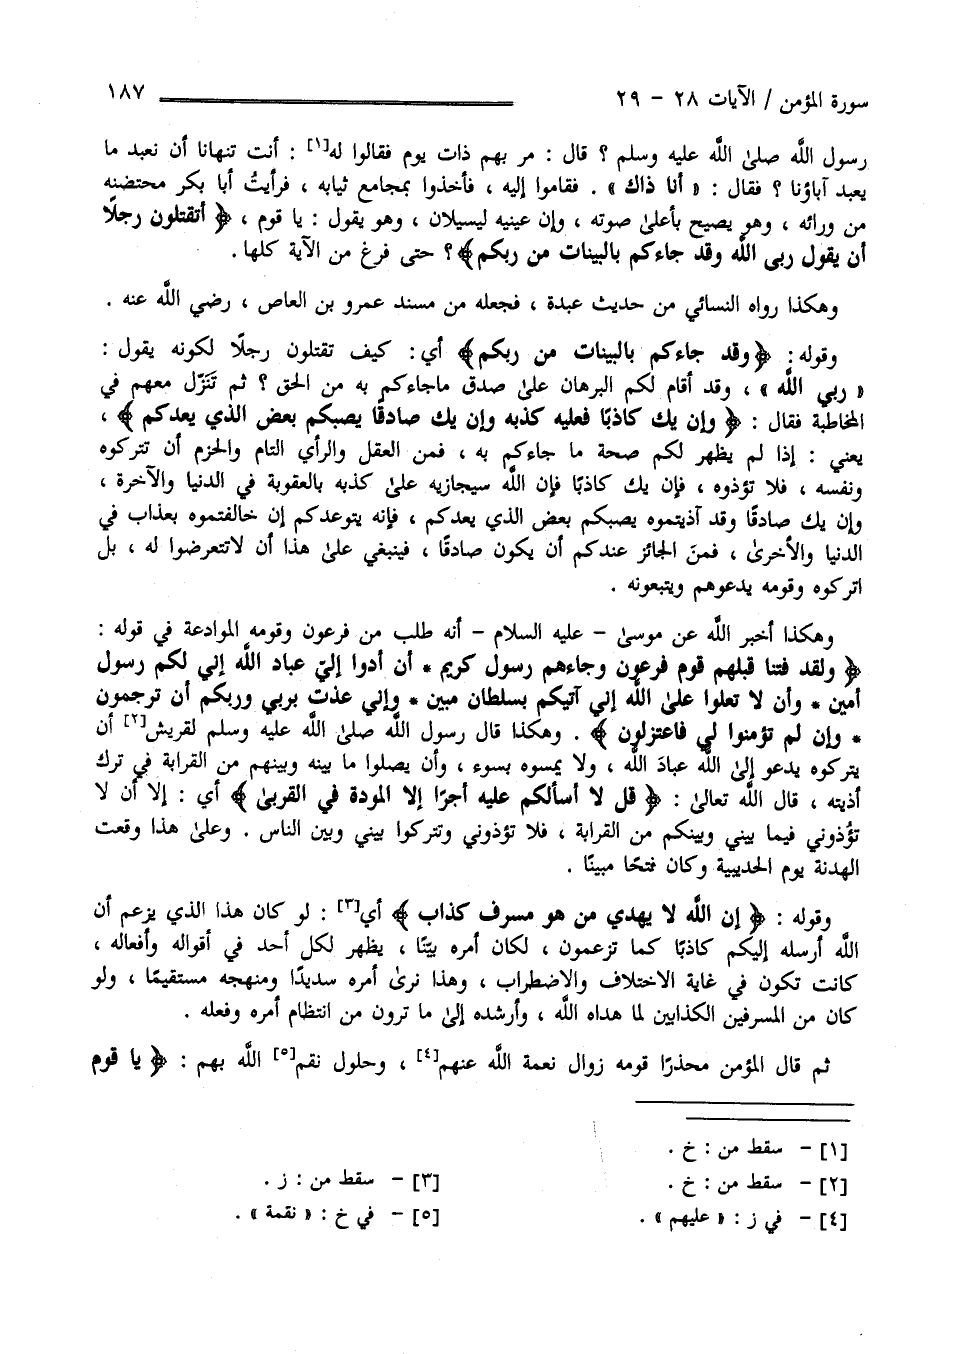 سورة المؤمن / الآيات ٢٨ - ٢٩ ١٨٧
رسول اللَّه صلىٰ اللَّه عليه وسلم ؟ قال : مر بهم ذات يوم فقالوا له[١] : أنت تنهانا أن نعبد ما
يعبد آباؤنا ؟ فقال : « أنا ذاك » . فقاموا إليه ، فأخذوا بمجامع ثيابه ، فرأيتُ أبا بكر محتضنه
من ورائه ، وهو يصيح بأعلىٰ صوته ، وإن عينيه ليسيلان ، وهو يقول : يا قوم ، ﴿ أتقتلون رجلًا
أن يقول ربي اللَّه وقد جاءكم بالبينات من ربكم﴾ ؟ حتى فرغ من الآية كلها .
وهكذا رواه النسائي من حديث عبدة ، فجعله من مسند عمرو بن العاص ، رضي اللَّه عنه .
وقوله : ﴿وقد جاءكم بالبينات من ربكم﴾ أي : كيف تقتلون رجلًا لكونه يقول :
« ربي اللَّه » ، وقد أقام لكم البرهان علىٰ صدق ماجاءكم به من الحق ؟ ثم تَنَزّل معهم في
المخاطبة فقال : ﴿ وإن يك كاذبًا فعليه كذبه وإن يك صادقًا يصبكم بعض الذي يعدكم ﴾ ،
يعني : إذا لم يظهر لكم صحة ما جاءكم به ، فمن العقل والرأي التام والحزم أن تتركوه
ونفسه ، فلا تؤذوه ، فإن يك كاذبًا فإن اللَّه سيجازيه علىٰ كذبه بالعقوبة في الدنيا والآخرة ،
وإن يك صادقًا وقد آذيتموه يصبكم بعض الذي يعدكم ، فإنه يتوعدكم إن خالفتموه بعذاب في
الدنيا والأخرىٰ ، فمنَ الجائز عندكم أن يكون صادقًا ، فينبغي علىٰ هذا أن لاتتعرضوا له ، بل
اتركوه وقومه يدعوهم ويتبعونه .
وهكذا أخبر اللَّه عن موسىٰ - عليه السلام - أنه طلب من فرعون وقومه الموادعة في قوله :
﴿ ولقد فتنا قبلهم قوم فرعون وجاءهم رسول كريم * أن أدوا إليّ عباد اللَّه إني لكم رسول
أمين * وأن لا تعلوا علىٰ اللَّه إني آتيكم بسلطان مبين * وإني عذت بربي وربكم أن ترجمون
* وإن لم تؤمنوا لي فاعتزلون ﴾ . وهكذا قال رسول اللَّه صلىٰ اللَّه عليه وسلم لقريش[٢] أن
يتركوه يدعو إلىٰ اللَّه عبادَ اللَّه ، ولا يمسوه بسوء ، وأن يصلوا ما بينه وبينهم من القرابة في ترك
أذيته ، قال اللَّه تعالىٰ : ﴿ قل لا أسألكم عليه أجرًا إلا المودة في القربىٰ ﴾ أي : إلا أن لا
تؤُذوني فيما بيني وبينكم من القرابة ، فلا تؤذوني وتتركوا بيني وبين الناس . وعلىٰ هذا وقعت
الهدنة يوم الحديبية وكان فتحًا مبينًا .
وقوله : ﴿ إن اللَّه لا يهدي من هو مسرف كذاب ﴾ أي[٣] : لو كان هذا الذي يزعم أن
اللَّه أرسله إليكم كاذبًا كما تزعمون ، لكان أمره بيّنًا ، يظهر لكل أحد في أقواله وأفعاله ،
كانت تكون في غاية الاختلاف والاضطراب ، وهذا نرىٰ أمره سديدًا ومنهجه مستقيمًا ، ولو
كان من المسرفين الكذابين لما هداه اللَّه ، وأرشده إلىٰ ما ترون من انتظام أمره وفعله .
ثم قال المؤمن محذرًا قومه زوال نعمة اللَّه عنهم[٤] ، وحلول نقم[٥] اللَّه بهم : ﴿ يا قوم
[١] - سقط من : خ .
[٢] - سقط من : خ . [٣] - سقط من : ز .
[٤] - في ز : « عليهم » . [٥] - في خ : « نقمة » .